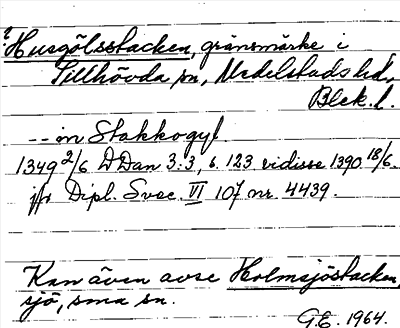 ? Husgölsstacken, gränsmärke i
Tillhövda sn, Medelstads hd,
Blek. l.
-- in Stakkogyl
1349 2/6 DDan 3:3, s. 123 vidisse 1390 18/6.
jfr Dipl. Svec. VI 107 nr. 4439.
Kan även avse Holmsjöstacken,
sjö, sma sn.
G.E. 1964.